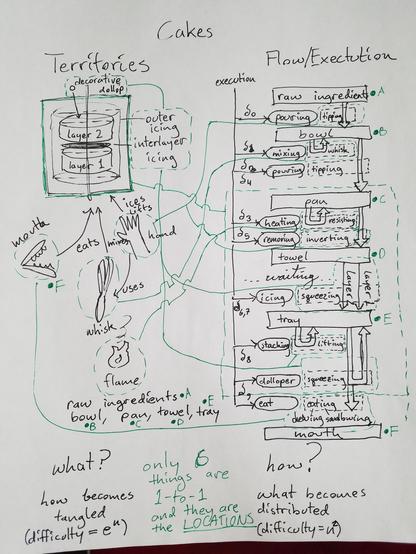 Cakes
Territories
decorative
dollop
outer
icing
interlayer
icing
layer 2
layer 1
ices
lifts
mixes
hand
mouth
eats
F
uses
whisk
flame
raw ingredients •A •E
bowl, pan, towel, tray
•B •C •D
Flow/Exectution
execution
raw ingredient •A
δ0 pouring tipping
bowl •B
mixing whisk
pouring tipping
δ4
pan •C
δ3 heating resisting
δ5 removing inverting
towel •D
waiting
layer
layer
icing squeezing
δ6,7
tray •E
stacking lifting
δ8
dolloper squeezing
δ9
eat eating
mouth •F
what?
how becomes
tangled
(difficulty = eⁿ)
only 6
things are
1-to-1
and they are
the LOCATIONS
how?
what becomes
distributed